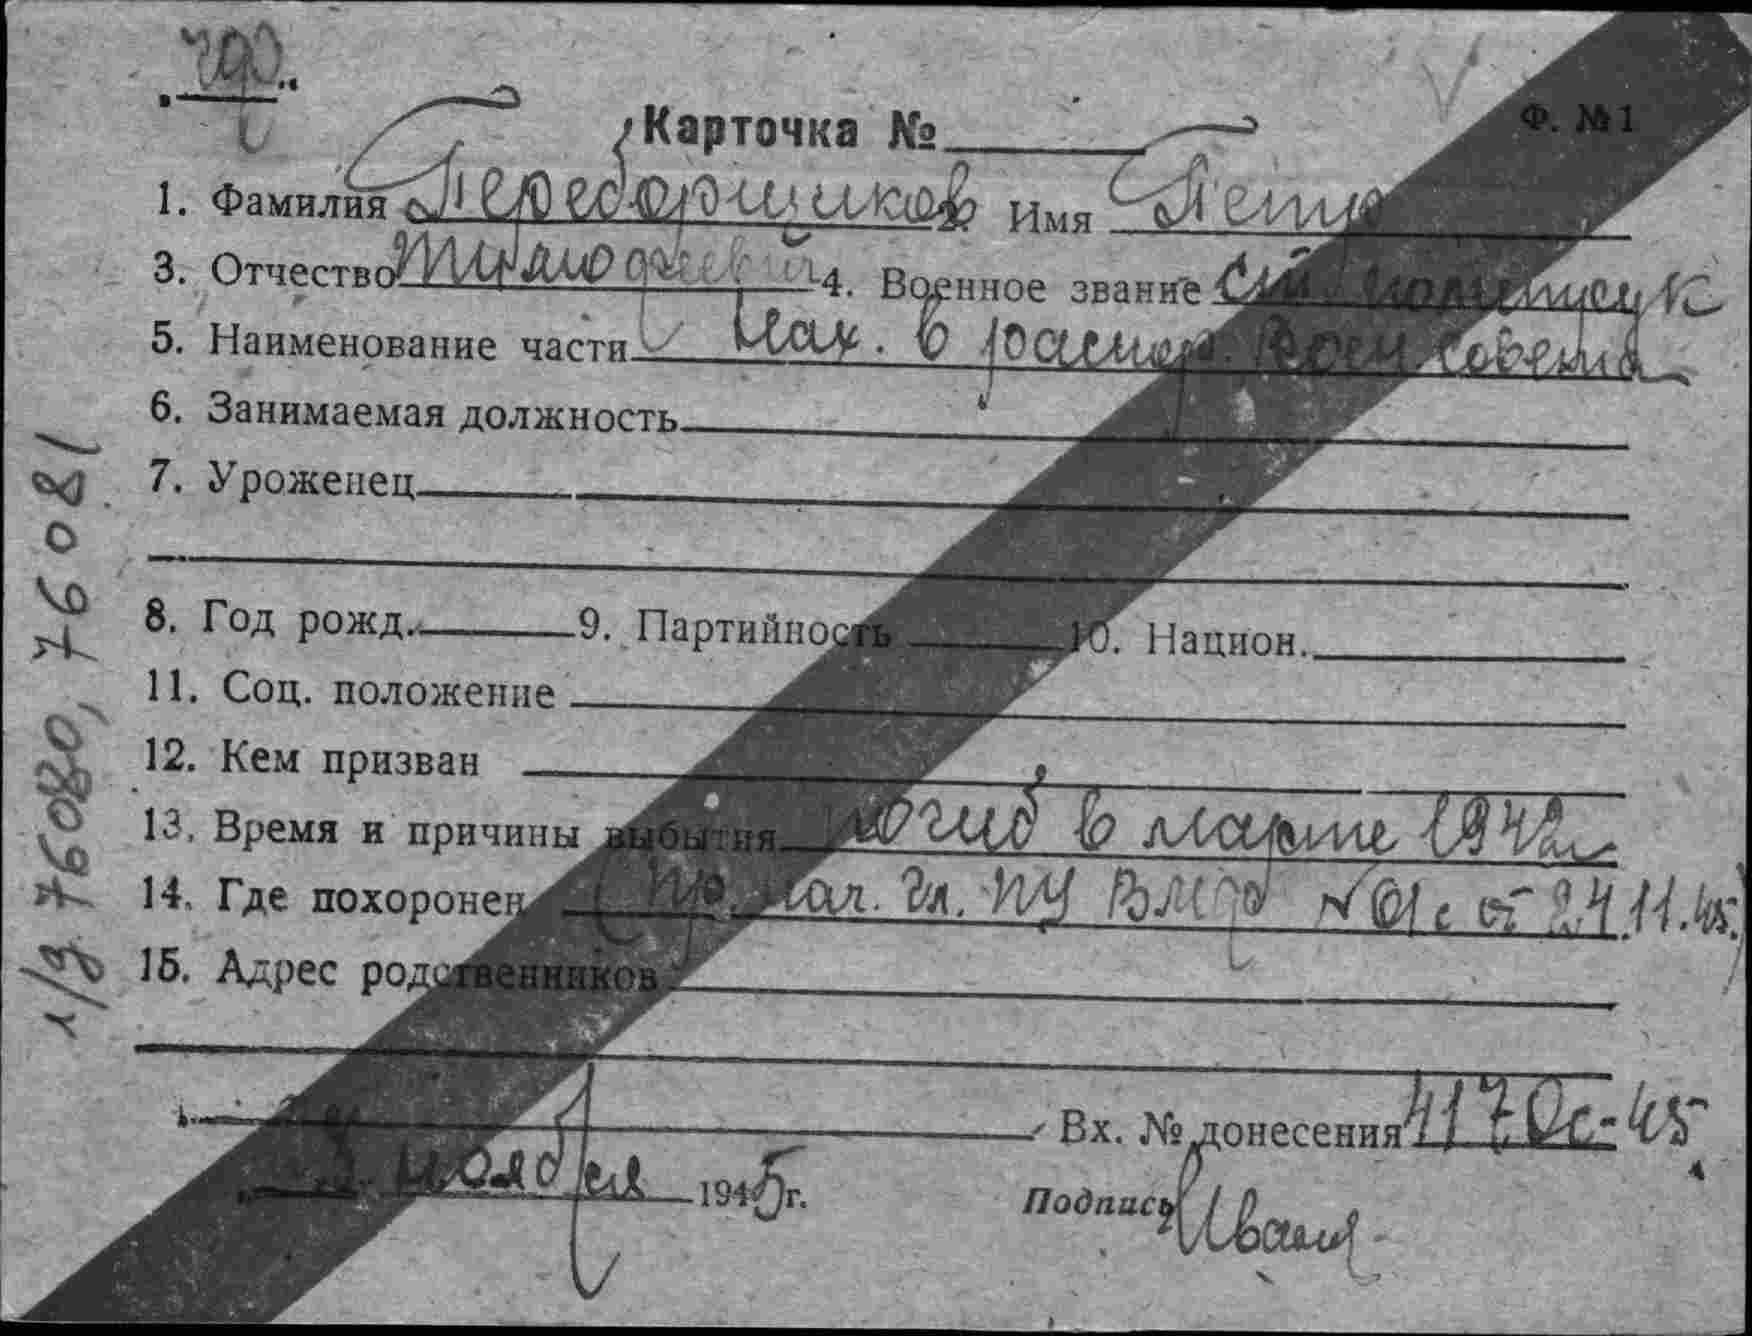 Карточка №
Ф. №1
1. Фамилия Переборщиков Имя Петр
3. Отчество Тимофеевич 4. Военное звание Ст. политрук
5. Наименование части Нах. в распор. Воен Совета
6. Занимаемая должность
7. Уроженец
8. Год рожд. 9. Партийность 10. Национ.
11. Соц. положение
12. Кем призван
13. Время и причины выбытия погиб в марте 1942
14. Где похоронен Пр. нал. Гл. ПУ ВМФ № 01с от 24.11.45
15. Адрес родственников
Вх. № донесения 4170с-45
ноября 1945 г.
Подпись
76080, 76081